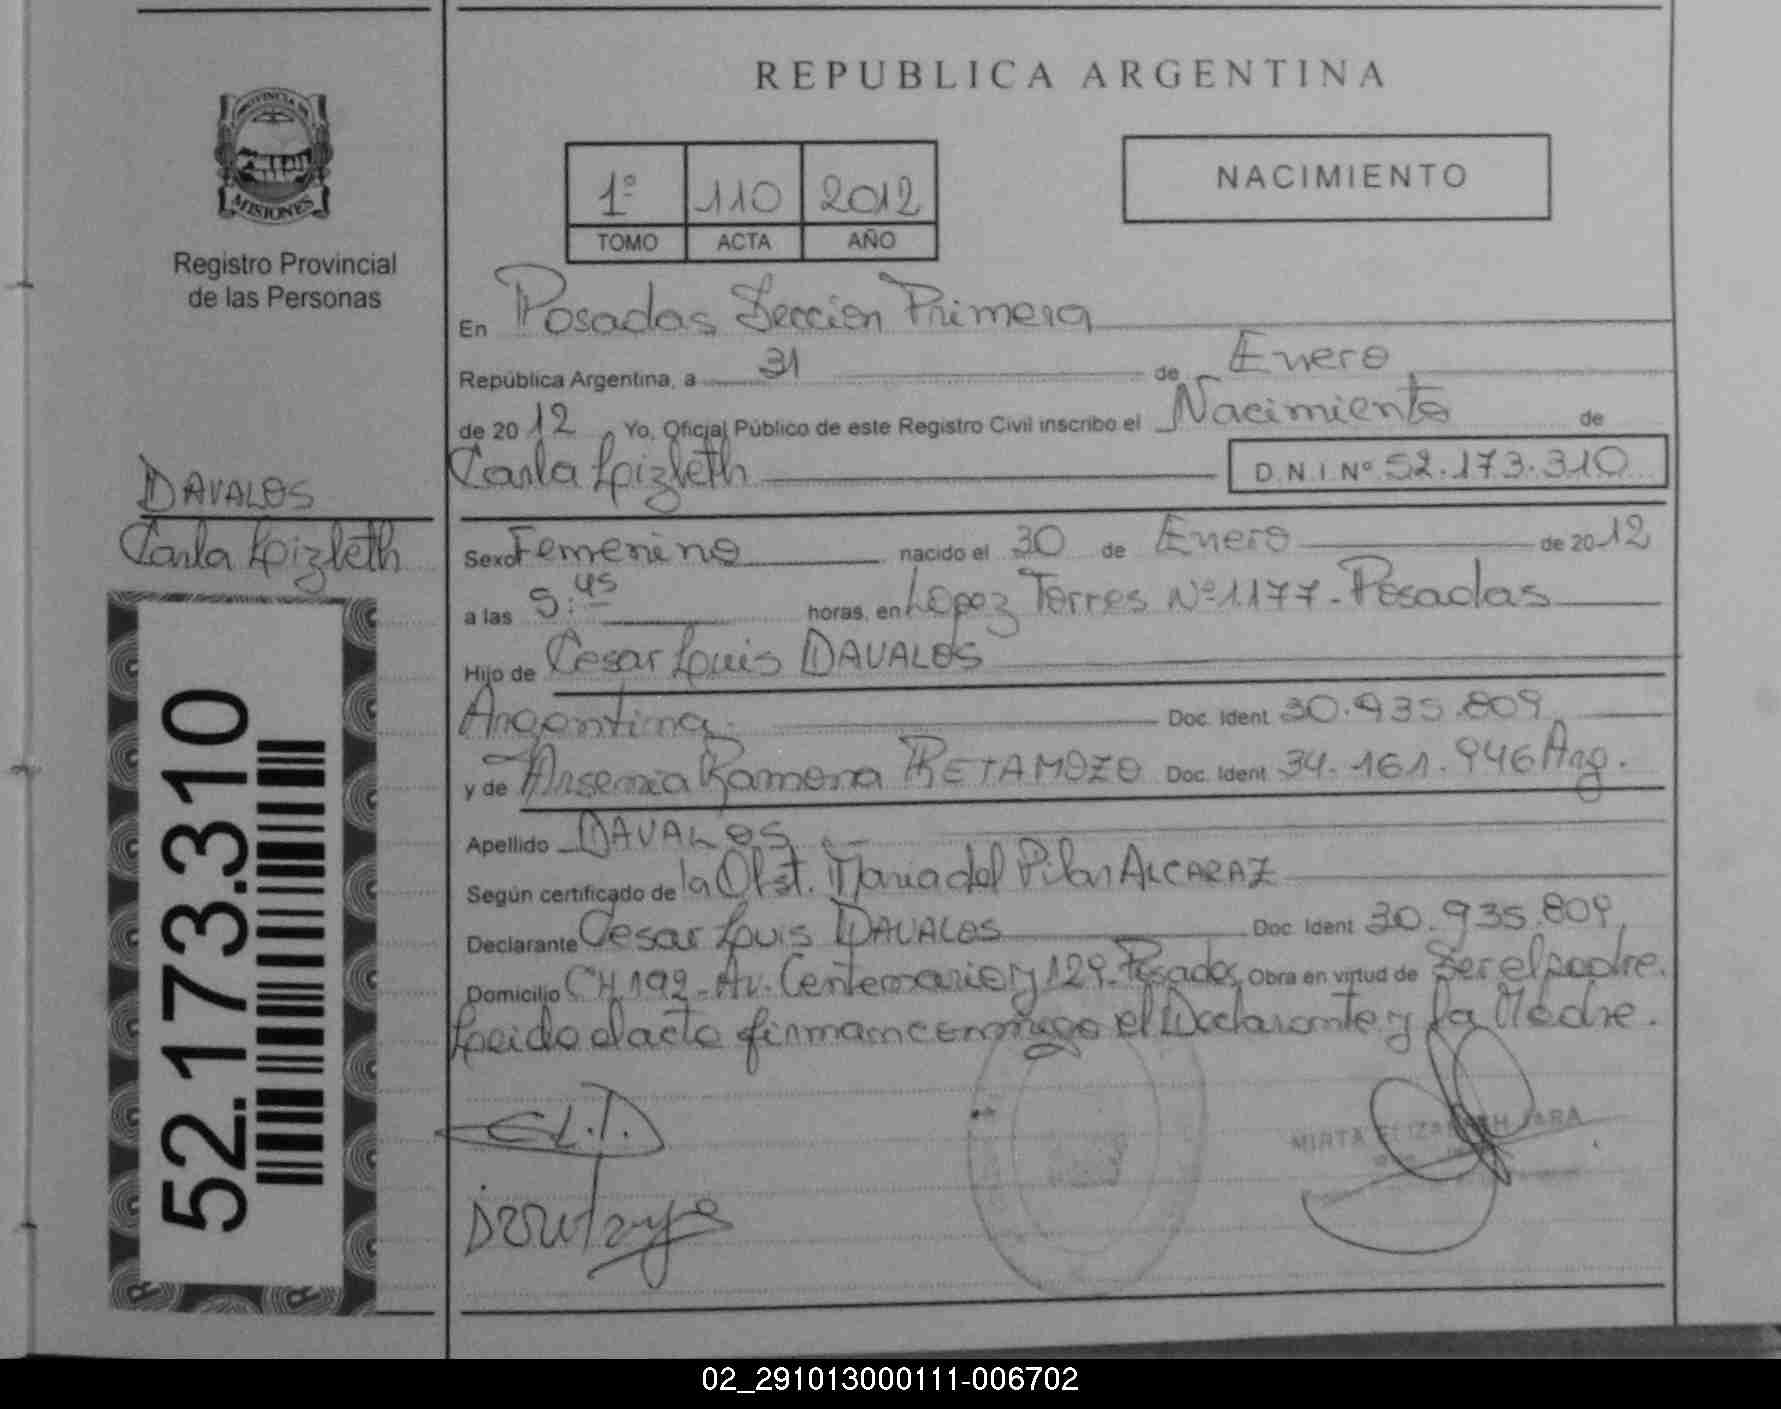 REPUBLICA ARGENTINA
PROVINCIA DE
MISIONES
Registro Provincial
de las Personas
1º 110 2012
TOMO ACTA AÑO
NACIMIENTO
En Posadas Seccion Primera
República Argentina, a 31 de Enero
de 2012 Yo, Oficial Público de este Registro Civil inscribo el Nacimiento de
Carla Lizleth D.N.I Nº 52.173.310
DAVALOS
Carla Lizleth
52.173.310
Sexo Femenino nacido el 30 de Enero de 2012
a las 5:45 horas, en Lopez Torres Nº 1177 - Posadas
Hijo de Cesar Luis DAVALOS
Argentina Doc. Ident 30.935.809
y de Ramona RETAMOZO Doc. Ident 34.161.946 Arg.
Apellido DAVALOS
Según certificado de la Obst. Maria del Pilar ALCARAZ
Declarante Cesar Luis DAVALOS Doc. Ident 30.935.809
Domicilio CH 192 - Av. Centenario y 129 - Posadas Obra en virtud de Ser el padre.
Leido el acta firman conmigo el Declarante y la Madre.
C.L.D.
MIRTA ELIZABETH JARA
02_291013000111-006702